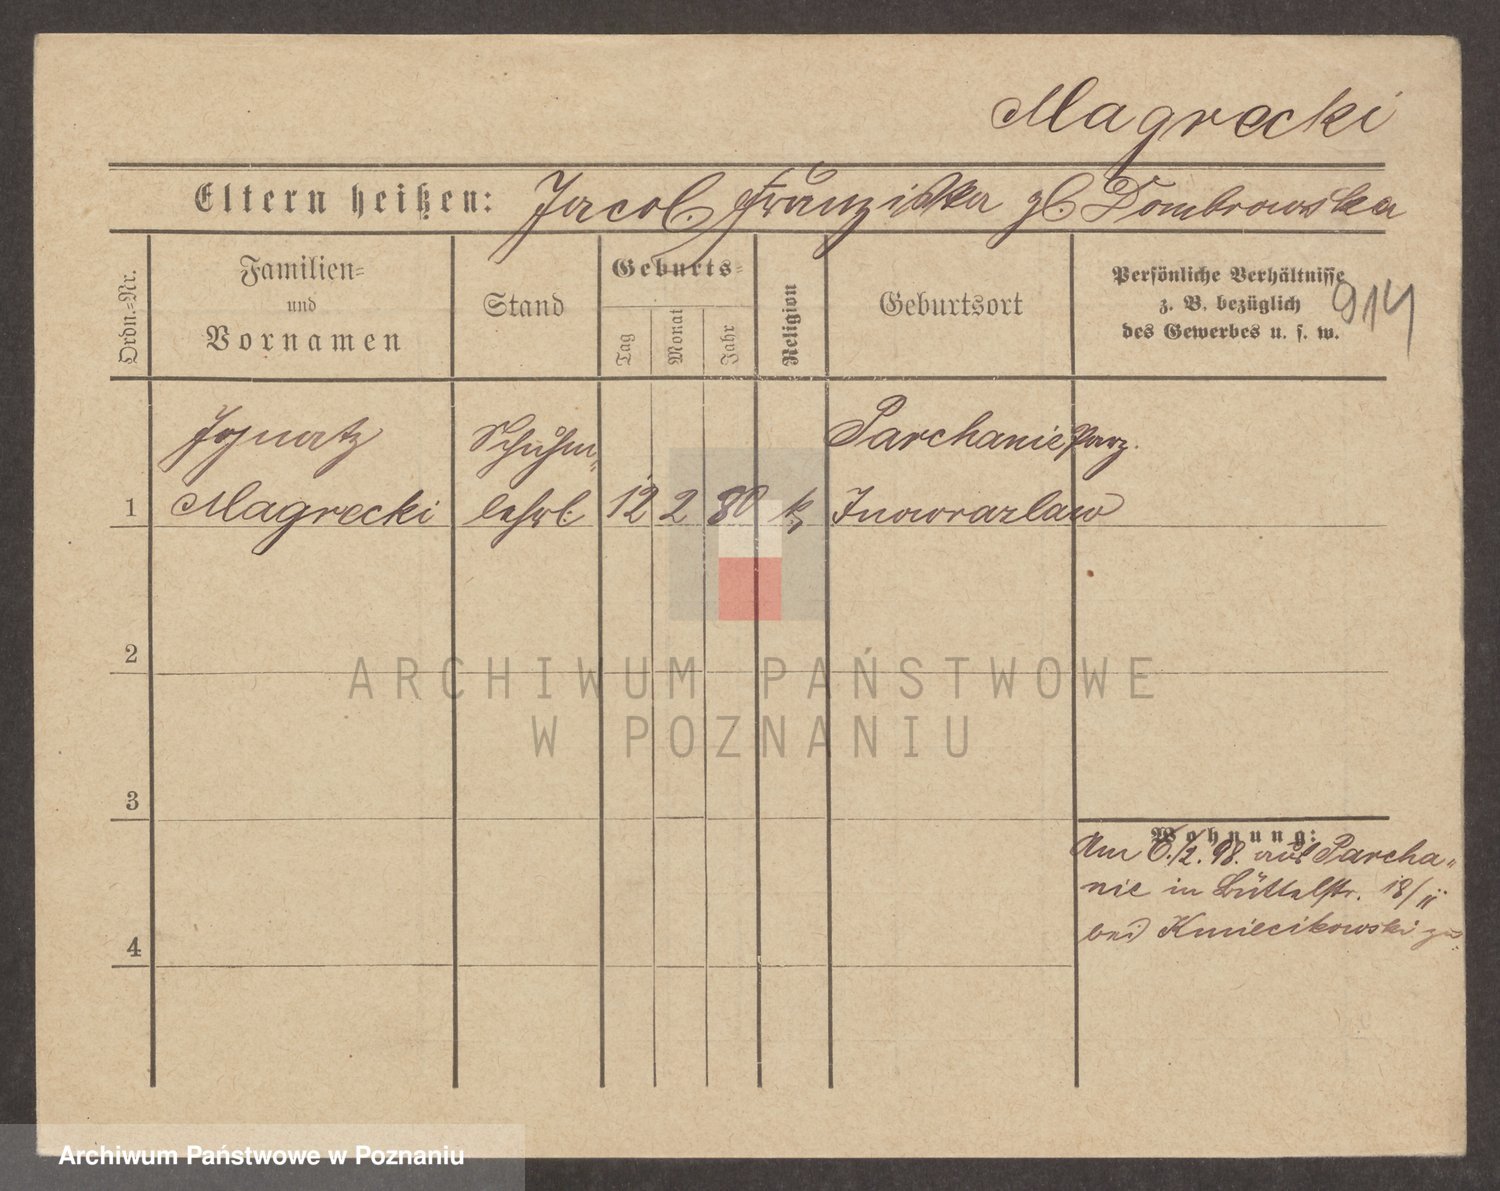 Magrecki
Eltern heißen: Jacob, Franziska gb. Dombrowska
Ordn.-Nr.
Familien-
und
Vornamen
Stand
Geburts-
Tag
Monat
Jahr
Religion
Geburtsort
Persönliche Verhältnisse
z. B. bezüglich
des Gewerbes u. s. w.
914
Ignatz Schuhm Parchanie
1 Magrecki lehrl. 12 2 80 k. Inowrazlaw
2
3
4
Wohnung:
Am 6./2. 98. aus Parcha-
nie in Büttelstr. 18/II
bei Kmiecikowski
ARCHIWUM PAŃSTWOWE
W POZNANIU
Archiwum Państwowe w Poznaniu